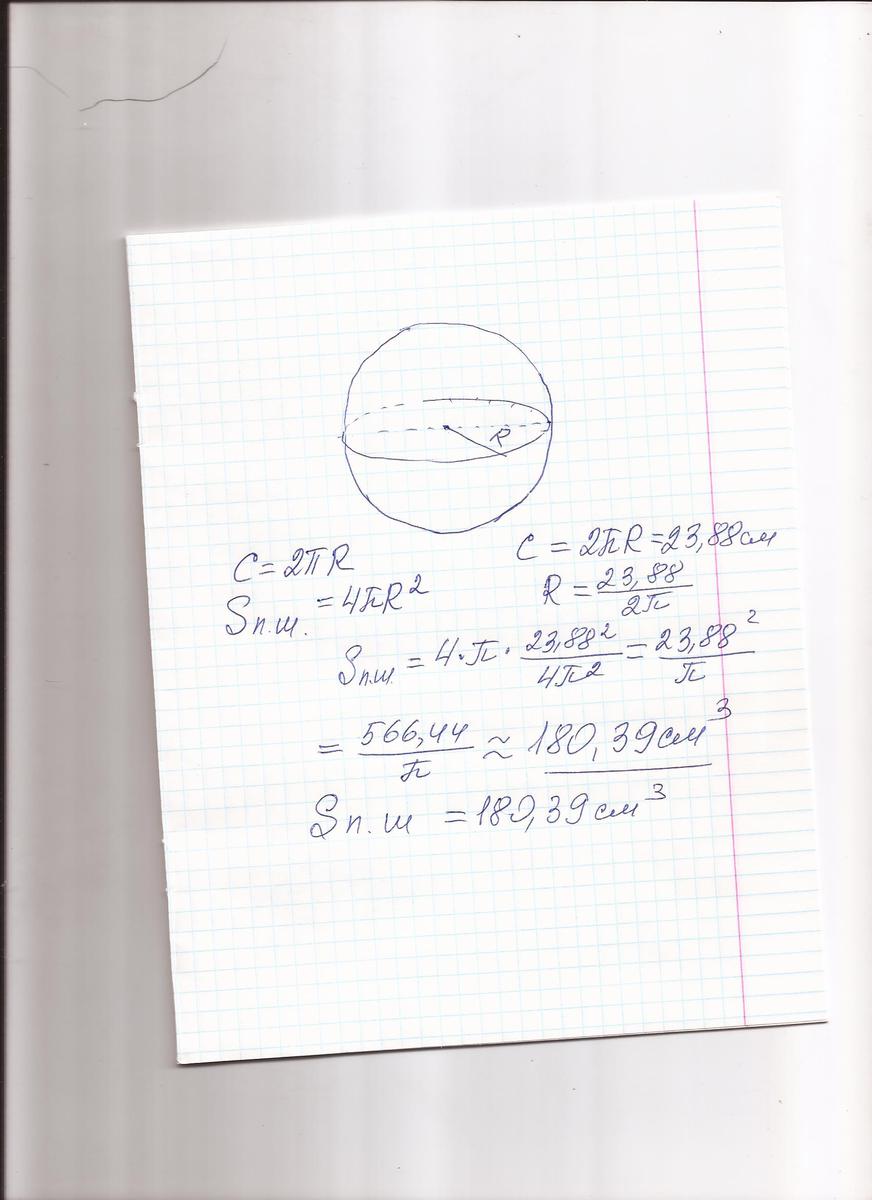 R
C = 2πR
Sп.ш. = 4πR²
C = 2πR = 23,88 см
R = 23,88 / 2π
Sп.ш. = 4 · π · 23,88² / 4π² = 23,88² / π
= 566,44 / π ≈ 180,39 см³
Sп.ш = 180,39 см³